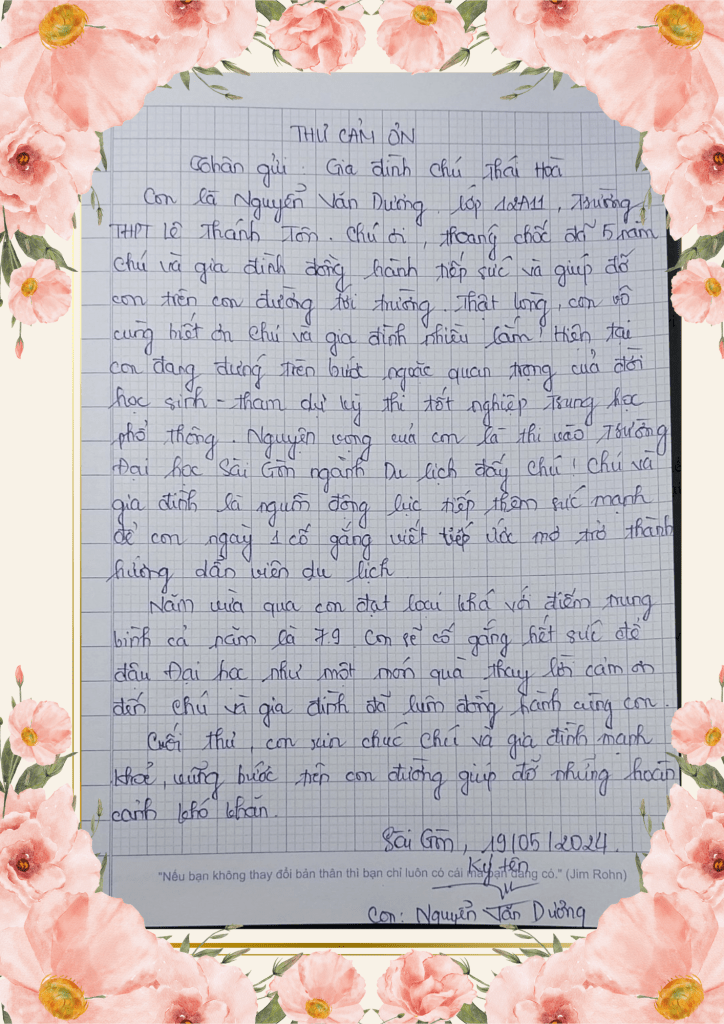 THƯ CẢM ƠN
Thân gửi : Gia đình chú Thái Hoà
Con là Nguyễn Văn Dương. Lớp 12A11, Trường
THPT Lê Thánh Tôn. Chú ơi, thoáng chốc đã 5 năm
chú và gia đình đồng hành tiếp sức và giúp đỡ
con trên con đường tới trường. Thật lòng, con vô
cùng biết ơn chú và gia đình nhiều lắm! Hiện tại
con đang đứng trên bước ngoặc quan trọng của đời
học sinh - tham dự kỳ thi tốt nghiệp Trung học
phổ thông. Nguyện vọng của con là thi vào Trường
Đại học Sài Gòn ngành Du lịch đấy chú! Chú và
gia đình là nguồn động lực tiếp thêm sức mạnh
để con ngày 1 cố gắng viết tiếp ước mơ trở thành
hướng dẫn viên du lịch
Năm vừa qua con đạt loại khá với điểm trung
bình cả năm là 7.9. Con sẽ cố gắng hết sức để
đậu Đại học như một món quà thay lời cảm ơn
đến chú và gia đình đã luôn đồng hành cùng con.
Cuối thư, con xin chúc chú và gia đình mạnh
khoẻ, vững bước trên con đường giúp đỡ những hoàn
cảnh khó khăn.
Sài Gòn, 19/05/2024.
Ký tên
"Nếu bạn không thay đổi bản thân thì bạn chỉ luôn có cái mà bạn đang có." (Jim Rohn)
Con: Nguyễn Tấn Dương